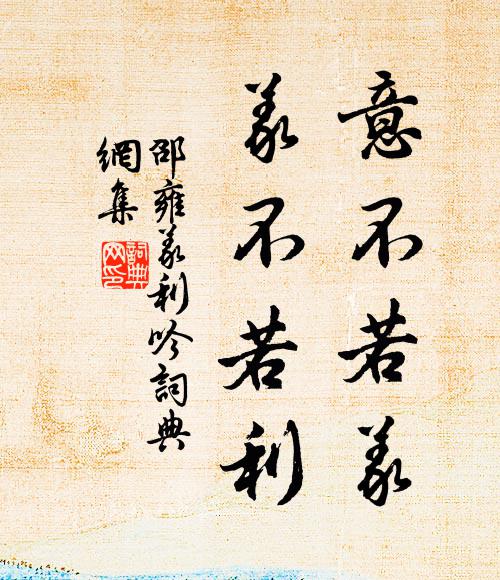 意不若義
義不若利
邵雍義利吟詞典
網集
詞典
网印